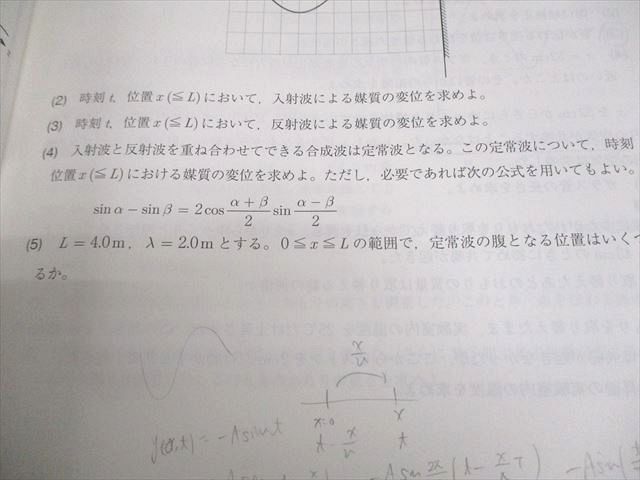 (2) 時刻 t, 位置 x (≦ L) において, 入射波による媒質の変位を求めよ。
(3) 時刻 t, 位置 x (≦ L) において, 反射波による媒質の変位を求めよ。
(4) 入射波と反射波を重ね合わせてできる合成波は定常波となる。この定常波について, 時刻
位置 x (≦ L) における媒質の変位を求めよ。ただし, 必要であれば次の公式を用いてもよい。
sin α − sin β = 2cos (α + β)/2 sin (α − β)/2
(5) L = 4.0 m, λ = 2.0 m とする。0 ≦ x ≦ L の範囲で, 定常波の腹となる位置はいくつ
るか。
x/v
x=0 x
y(0,t) = −A sin t
t − x/v t